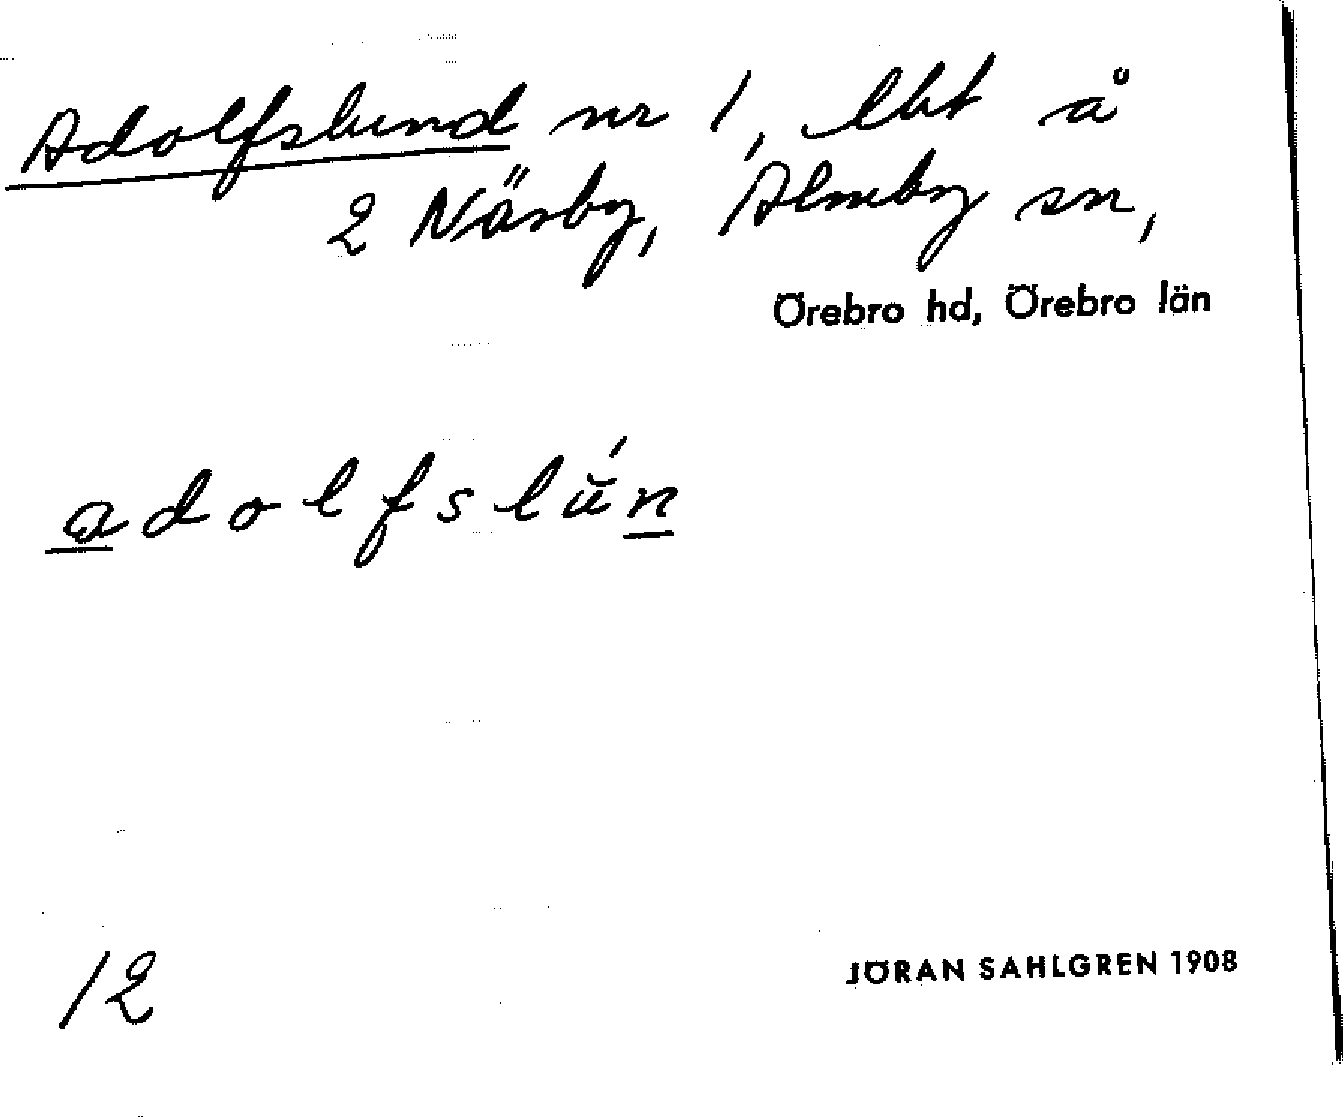 Adolfslund nr 1, lht å
2 Näsby, Almby sn,
Örebro hd, Örebro län
adolfslŭ́n
12
JÖRAN SAHLGREN 1908